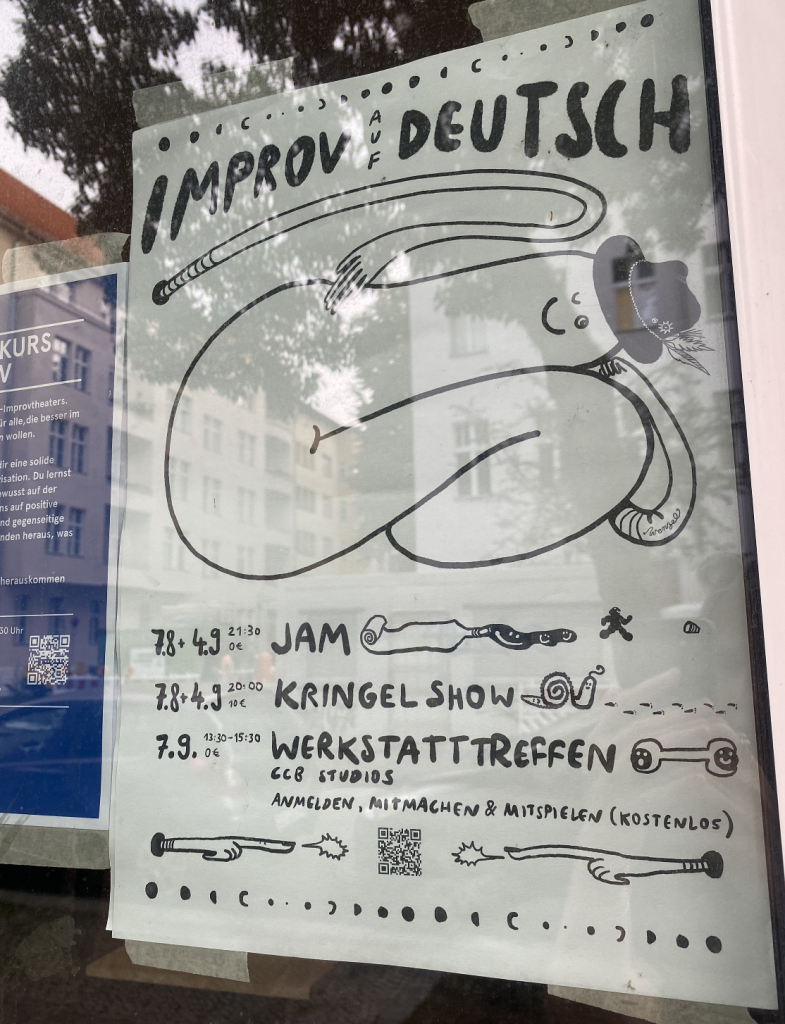 IMPROV AUF DEUTSCH
wenzel
7.8+4.9 21:30 0€ JAM
7.8+4.9 20:00 10€ KRINGEL SHOW
7.9. 13:30-15:30 0€ WERKSTATTTREFFEN
CCB STUDIOS
ANMELDEN, MITMACHEN & MITSPIELEN (KOSTENLOS)
KURS
V
-Improvtheaters.
ür alle, die besser im
n wollen.
dir eine solide
visation. Du lernst
ewusst auf der
ns auf positive
nd gegenseitige
nden heraus, was
herauskommen
30 Uhr